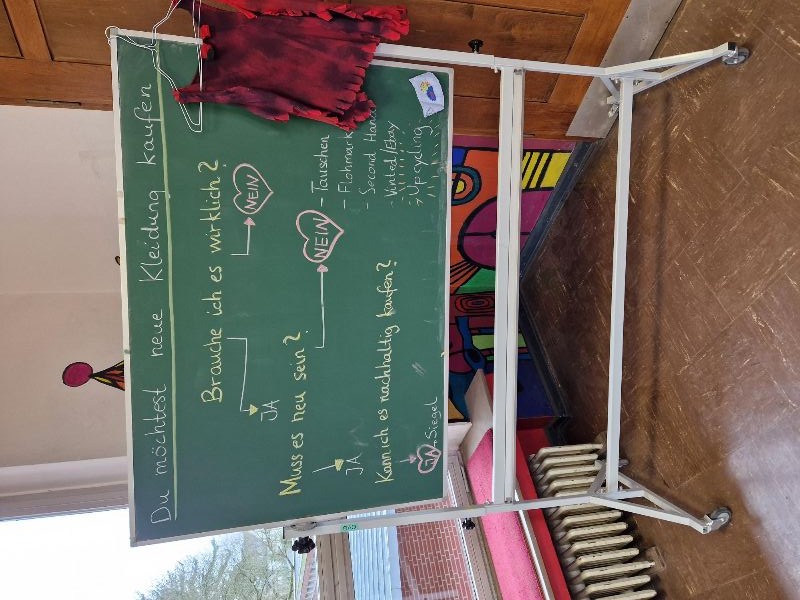 Du möchtest neue Kleidung kaufen
Brauche ich es wirklich?
JA
NEIN
Muss es neu sein?
JA
NEIN
- Tauschen
- Flohmarkt
- Second Hand
- Vinted/Ebay
- Upcycling
Kann ich es nachhaltig kaufen?
JA
Siegel